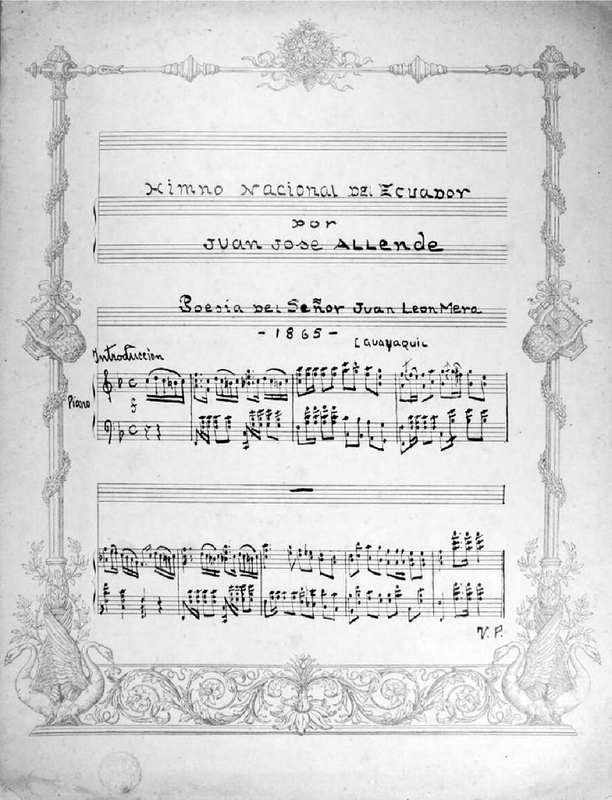 Himno Nacional Del Ecuador
por
Juan Jose Allende
Poesia Del Señor Juan Leon Mera
- 1865 -
(Guayaquil
Introduccion
Piano
f
V. P.